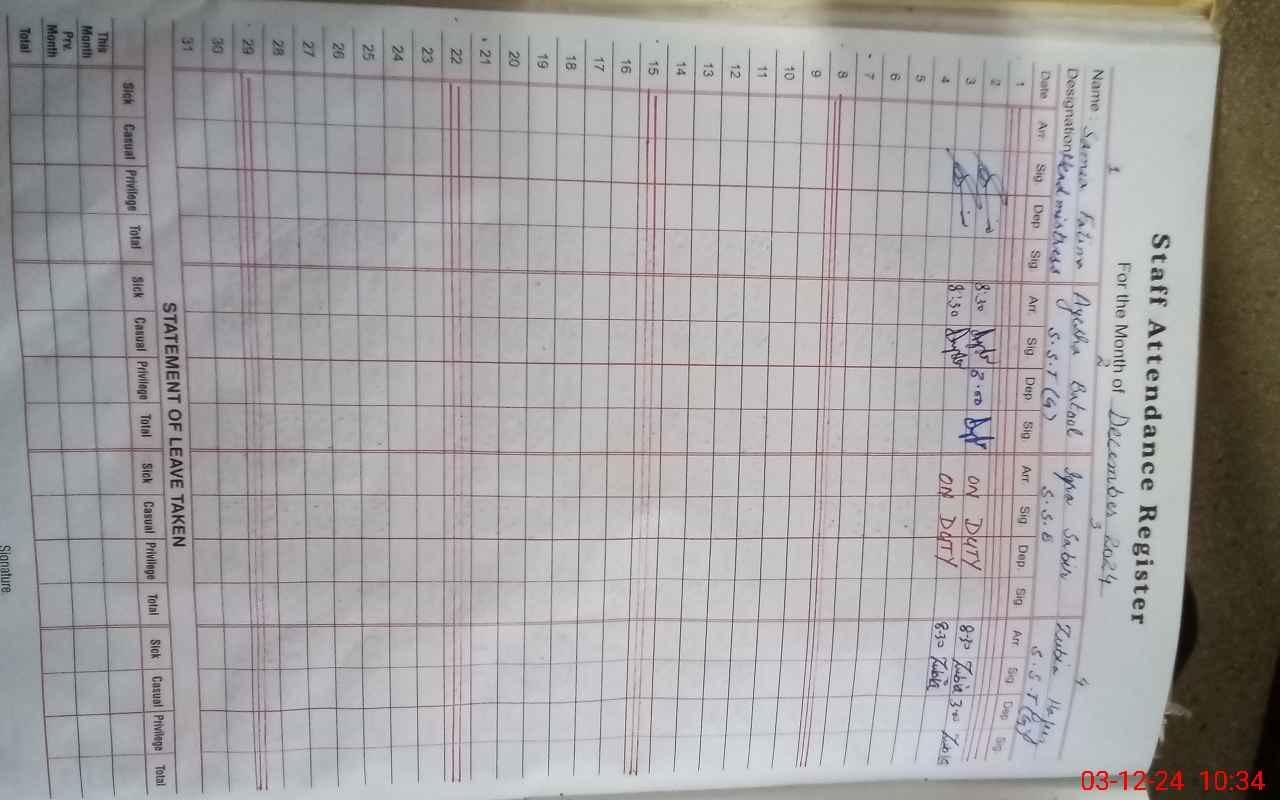 Staff Attendance Register
For the Month of December 2024
1 2 3 4
Name: Samia Fatima Ayesha Batool Iqra Saber Zubia Hafeez
Designation Headmistress S.S.T (G) S.S.E S.S.T (G)
Date Arr. Sig Dep Sig Arr. Sig Dep Sig. Arr. Sig. Dep. Sig Arr. Sig Dep Sig.
1
2
3 8:30 8.00 ON DUTY 8:30 Zubia 3:00 Zubia
4 8:30 ON DUTY 8:30 Zubia
5
6
7
8
9
10
11
12
13
14
15
16
17
18
19
20
21
22
23
24
25
26
27
28
29
30
31
STATEMENT OF LEAVE TAKEN
Sick Casual Privilege Total Sick Casual Privilege Total Sick Casual Privilege Total Sick Casual Privilege Total
This Month
Prv. Month
Total
Signature
03-12-24 10:34